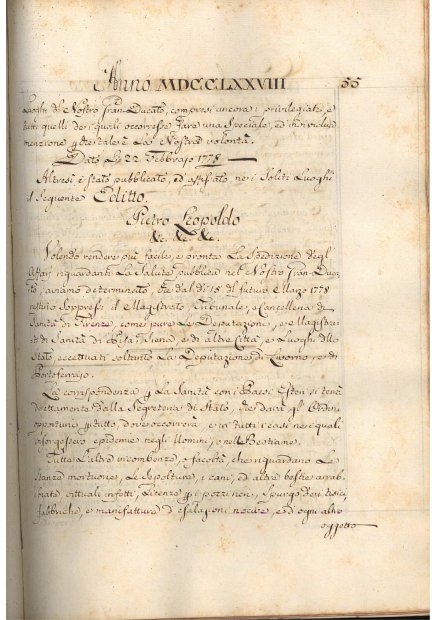 Anno MDCCLXXVIII 55
Luoghi del Nostro Gran Ducato, compresi ancora i privilegiati, e
tutti quelli de i quali occorresse fare una speciale, ed individua
menzione q.to tale è La Nostra volontà.
Dato Le 22 Febbrajo 1778
Altresì è stato pubblicato, ed affissato ne i Soliti Luoghi
il Seguente Editto.
Pietro Leopoldo
&c. &c. &c.
Volendo rendere più facile, e pronta La Spedizione degl'
Affari riguardanti La Salute pubblica nel Nostro Gran Duca
to, aviamo determinato, che dal dì 15 di futuro Marzo 1778
restino soppressi il Magistrato, Tribunale, e Cancelleria di
Sanità di Firenze, come pure Le Deputazioni, e Magistra
ti di Sanità di Pisa, Siena, e di altre Città, e Luoghi dello
Stato eccettuati soltanto La Deputazione di Livorno, e di
Portoferrajo.
La corrispondenza p la Sanità con i Paesi Esteri si terrà
direttamente dalla Segreteria di Stato, che darà gl'Ordini
opportuni p tutto dove occorrerà, e in tutti i casi nei quali
insorgessero epidemie negli Uomini, o nelle Bestiame.
Tutte L'altre incombenze, e facoltà, che riguardano Le
Stanze mortuorie, Le Sepolture, i cani, ed altre bestie arrab
biate cibi infetti, Licenze p i pozzi neri, Spurgo dei tisici
fabbriche, e manifatture d'esalazioni nocive, ed ogni altro
oggetto